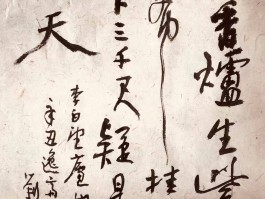 香爐生紫
布挂
下三千尺疑是
天
李白望廬
辛丑逸
劉